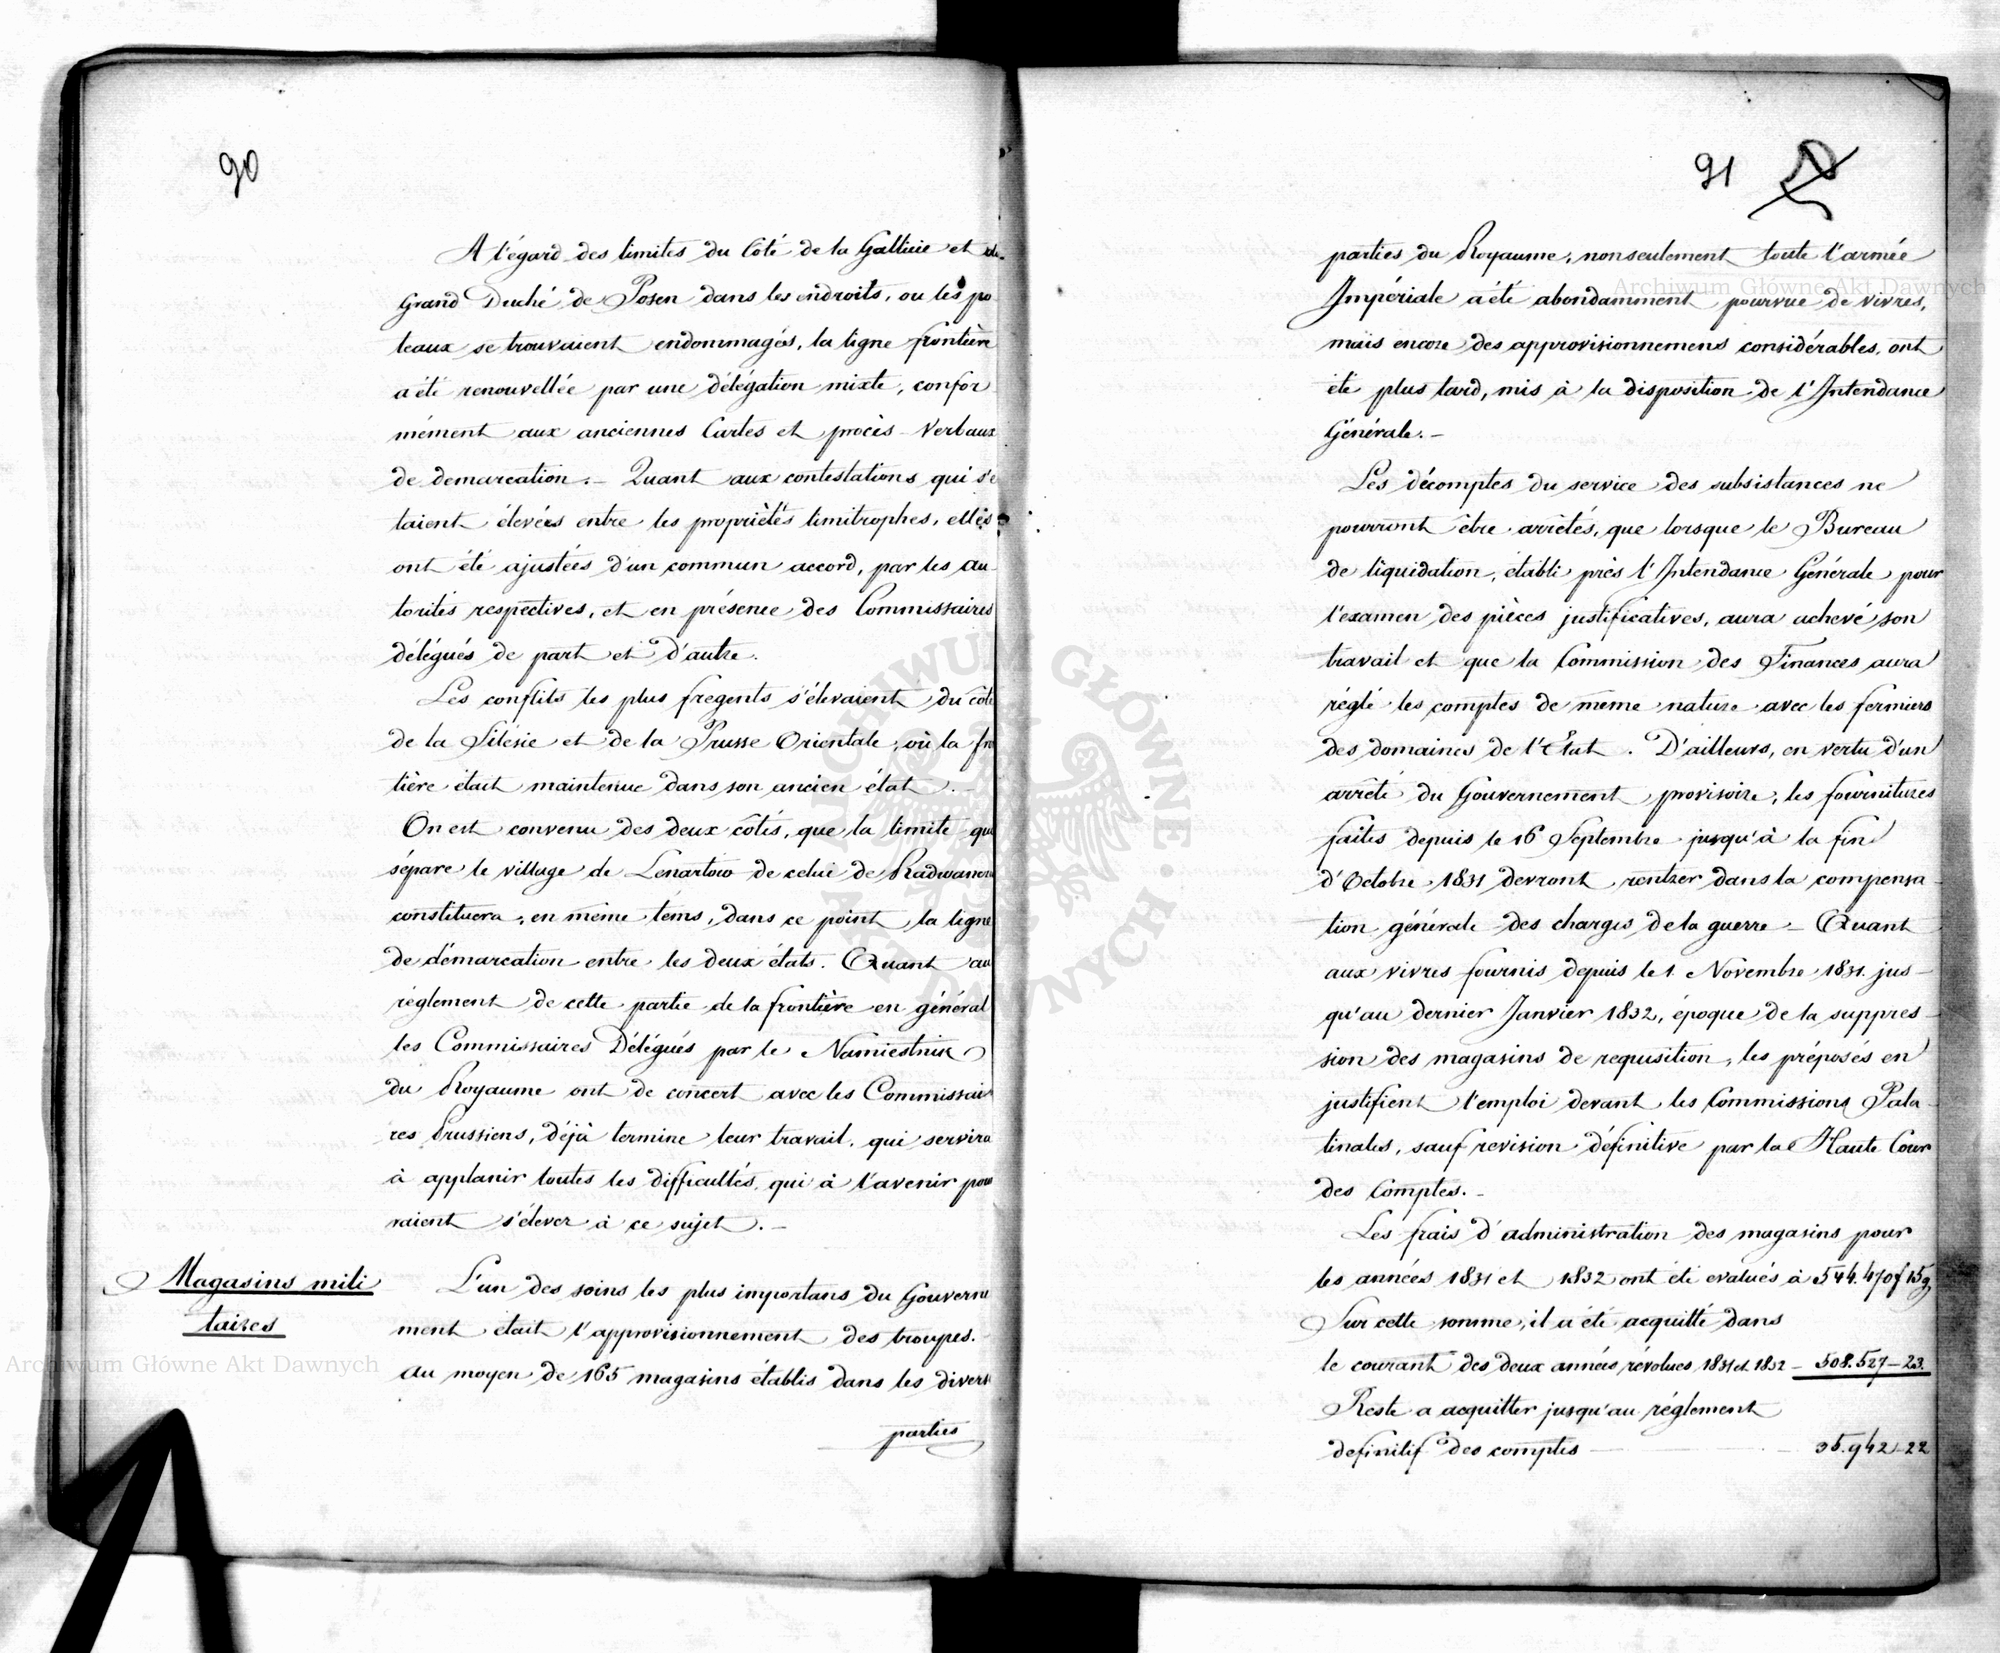 90
A l'égard des limites du Coté de la Gallicie et du
Grand Duché de Posen dans les endroits, ou les po
teaux se trouvaient endommagés, la ligne frontière
a été renouvellée par une délégation mixte, confor
mément aux anciennes Cartes et procès-Verbaux
de demarcation. – Quant aux contestations qui s'é
taient élevées entre les propriétés limitrophes, elles
ont été ajustées d'un commun accord, par les au
torités respectives, et en présence des Commissaires
délégués de part et d'autre.
Les conflits les plus fregents s'élevaient du coté
de la Silésie et de la Prusse Orientale, où la fron
tière était maintenue dans son ancien état. –
On est convenu des deux côtés, que la limite qui
sépare le village de Lenartow de celui de
constituera, en même tems, dans ce point la ligne
de démarcation entre les deux états. Quant au
réglement de cette partie de la frontière en général
les Commissaires Délégués par le Namiestnik
du Royaume ont de concert avec les Commissai
res Prussiens, déjà terminé leur travail, qui servira
à applanir toutes les difficultés, qui à l'avenir pour
raient s'élever à ce sujet. –
Magasins mili
taires
L'un des soins les plus importans du Gouverne
ment était l'approvisionnement des troupes.
Au moyen de 165 magasins établis dans les divers
parties
91
parties du Royaume, nonseulement toute l'armée
Impériale a été abondamment pourvue de vivres,
mais encore des approvisionnemens considérables, ont
été plus tard, mis à la disposition de l'Intendance
Générale. –
Les décomptes du service des subsistances ne
pourront être arrêtés, que lorsque le Bureau
de liquidation, établi près l'Intendance Générale pour
l'examen des pièces justificatives, aura achevé son
travail et que la Commission des Finances aura
réglé les comptes de même nature avec les fermiers
des domaines de l'État. D'ailleurs, en vertu d'un
arrêté du Gouvernement provisoire, les fournitures
faites depuis le 16 Septembre jusqu'à la fin
d'Octobre 1831 devront rentrer dans la compensa
tion générale des charges de la guerre – Quant
aux vivres fournis depuis le 1. Novembre 1831. jus-
qu'au dernier Janvier 1832, époque de la suppres-
sion des magasins de requisition, les préposés en
justifient l'emploi devant les Commissions Pala-
tinales, sauf revision définitive par la Haute Cour
des Comptes. –
Les frais d'administration des magasins pour
les années 1831 et 1832 ont été evalués à 544.470 f 15 g
Sur cette somme, il a été acquitté dans
le courant des deux années révolues 1831 et 1832 – 508.527 – 23.
Reste a acquitter jusqu'au réglement
definitif des comptes – 35.942 – 22
Archiwum Główne Akt Dawnych
Archiwum Główne Akt Dawnych
ARCHIWUM GŁÓWNE AKT DAWNYCH